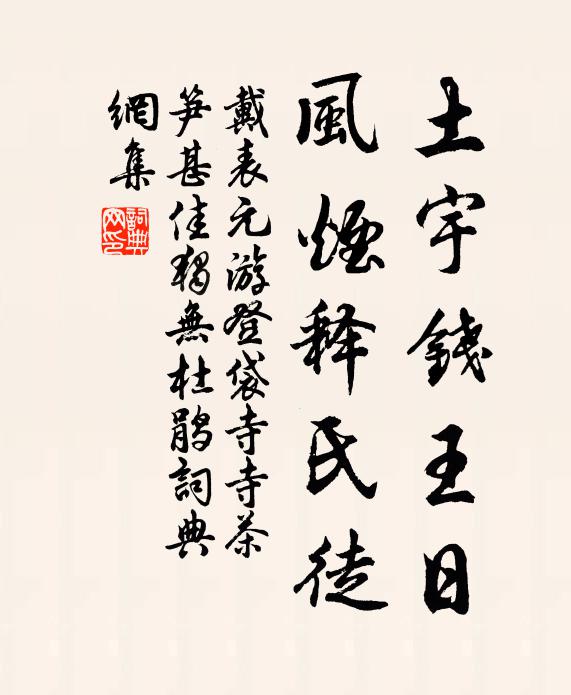 土宇錢王日
風煙释氏徒
戴表元游登袋寺寺茶
笋甚佳獨無杜鹃詞典
網集
詞典网印